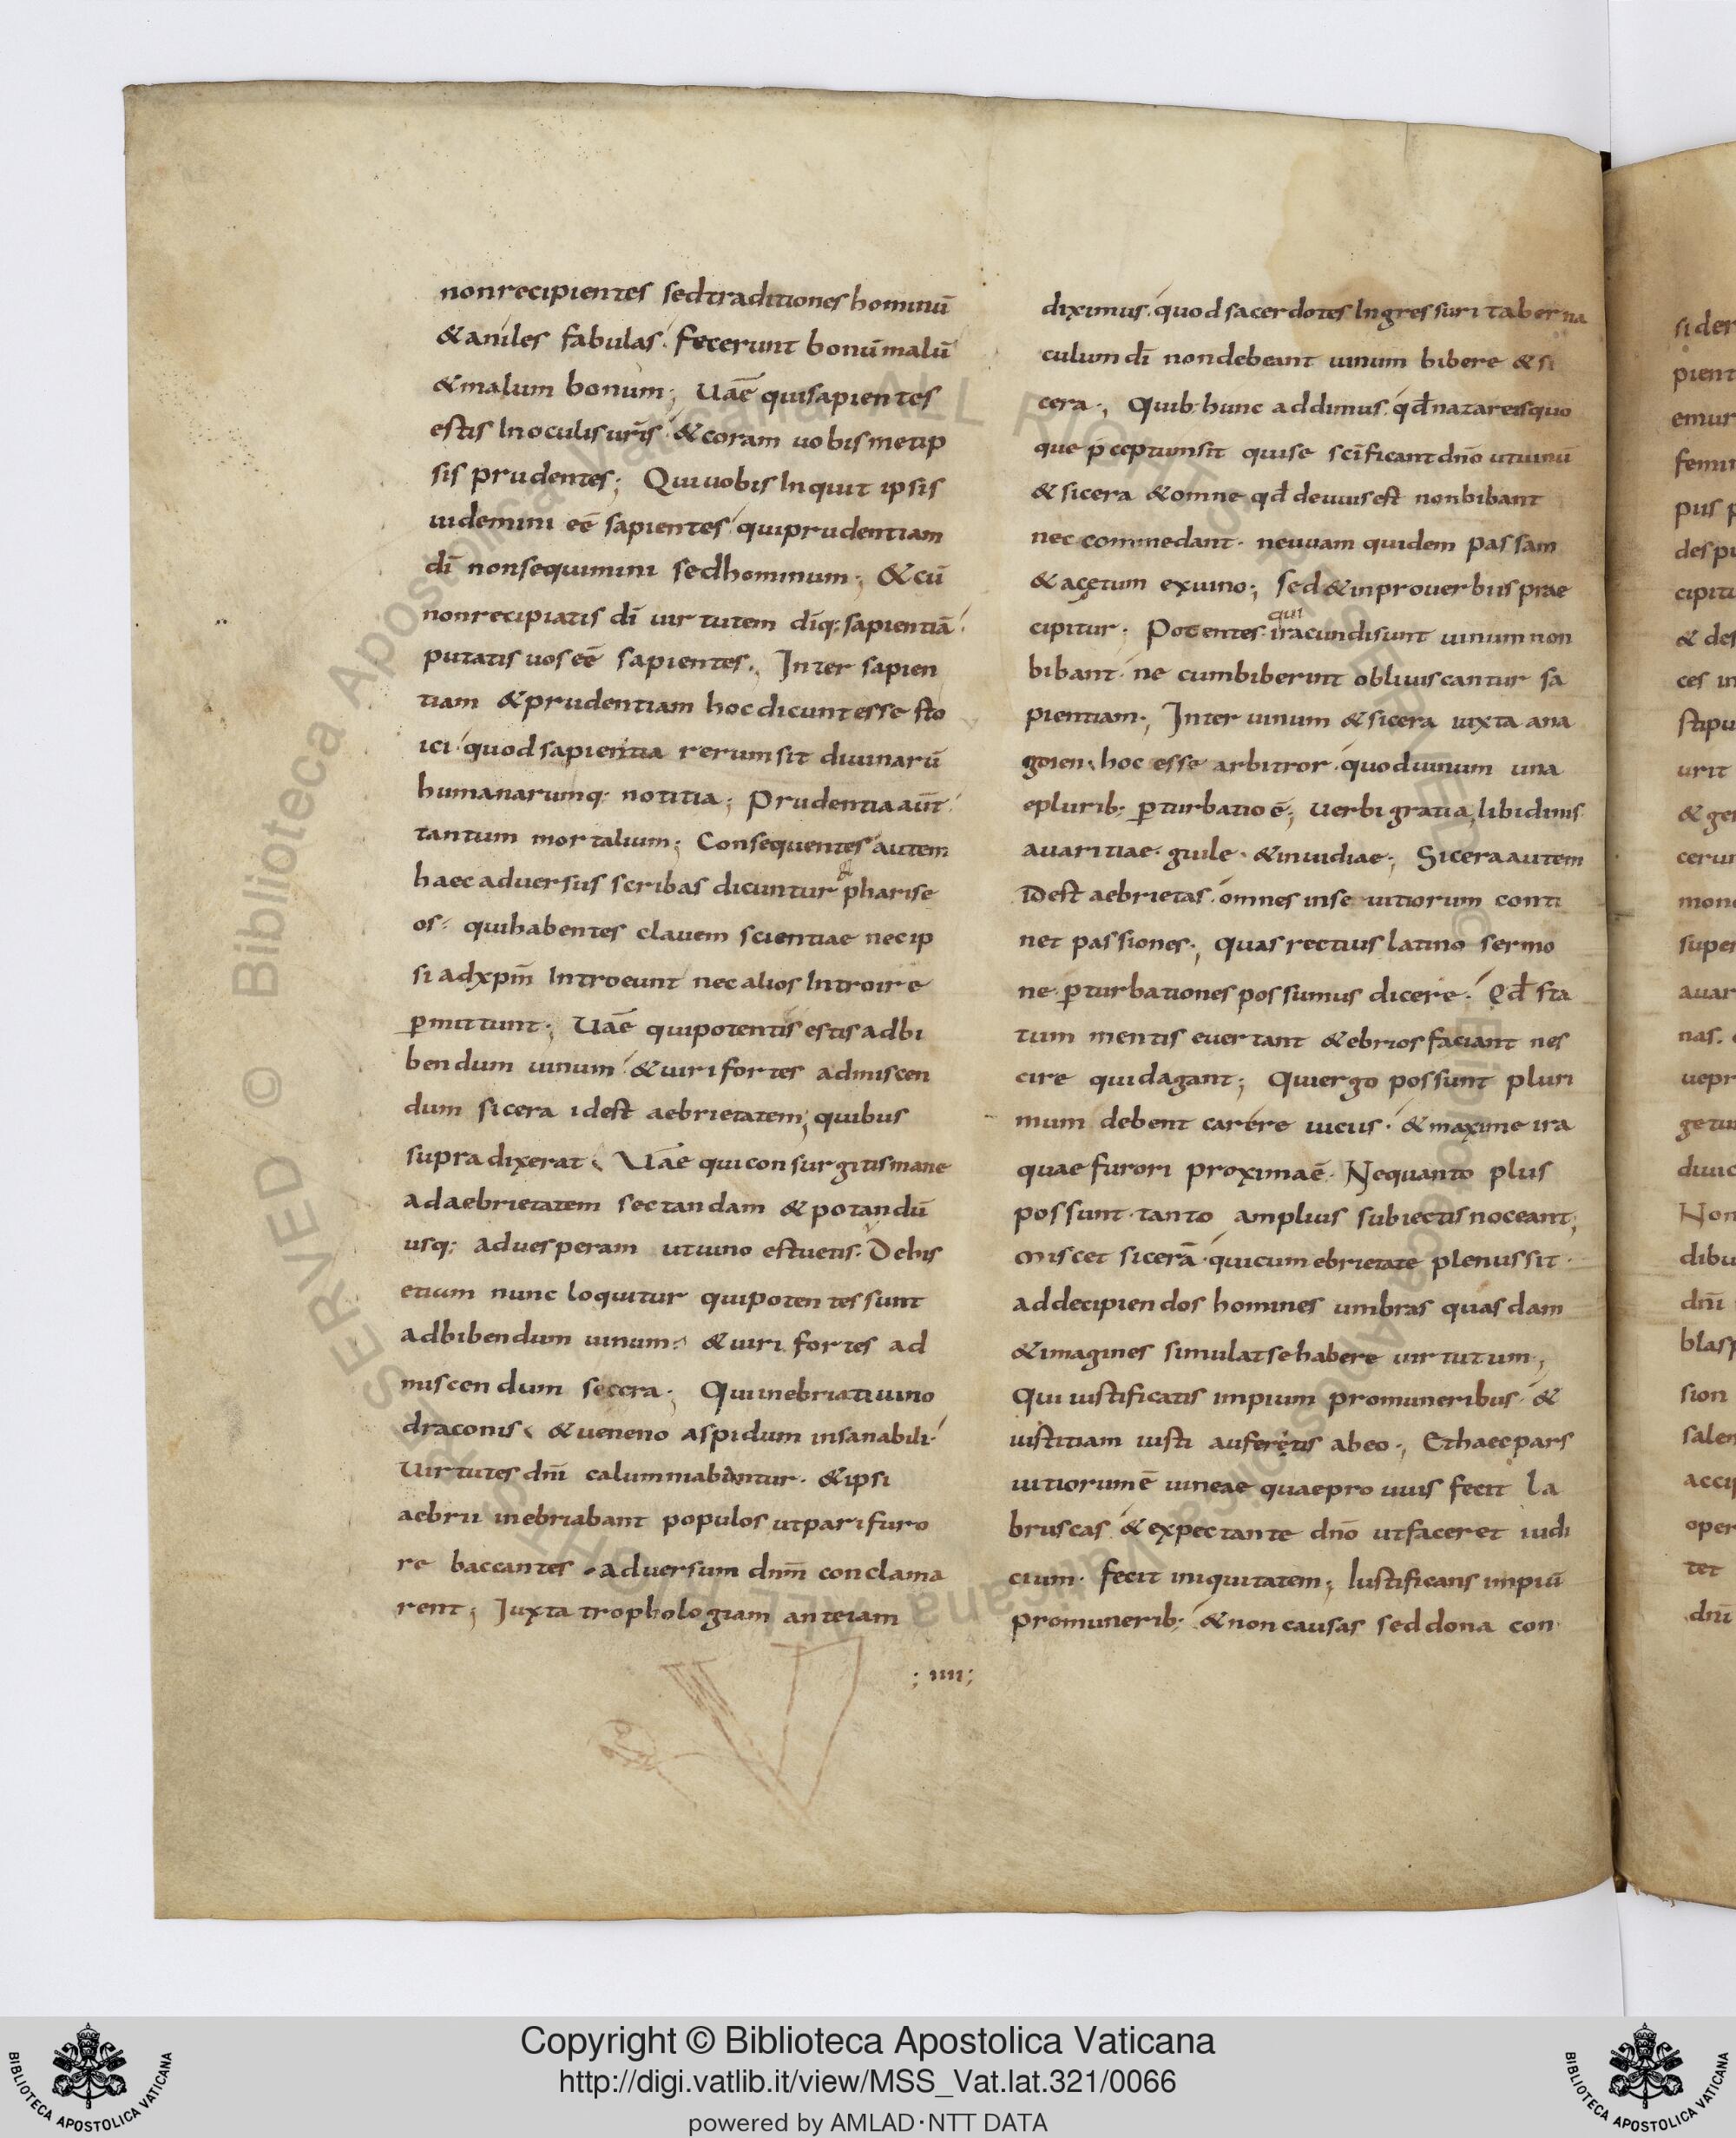 non recipientes sed traditiones hominū
& aniles fabulas. fecerunt bonū malū
& malum bonum; Uaē qui sapientes
estis In oculis ur̄is. & coram uobismetip
sis prudentes; Qui uobis Inquit ipsis
uidemini eē sapientes. qui prudentiam
dī non sequimini sed hominum; & cū
non recipiatis dī uirtutem dīq; sapientiā.
putatis uos eē sapientes. Inter sapien
tiam & prudentiam hoc dicunt esse sto
ici. quod sapientia rerum sit diuinarū
humanarumq; notitia; Prudentia aūt.
tantum mortalium; Consequenter autem
haec aduersus scribas dicuntur & pharise
os. qui habentes clauem scientiae nec ip
si ad xpm̄ Introeunt nec alios Introire
ꝑmittunt; Uaē qui potentis estis ad bi
bendum uinum. & uiri fortes admiscen
dum sicera idest aebrietatem; quibus
supra dixerat. Uae qui consurgitis mane
ad aebrietatem sectandam & potandū
usq; ad uesperam ut uino estuetis. De his
etiam nunc loquitur qui potentes sunt
ad bibendum uinum. & uiri fortes ad
miscendum secera; Qui inebriati uino
draconis. & ueneno aspidum insanabili.
Uirtutes dn̄i calumniabantur. & ipsi
aebrii inebriabant populos ut pari furo
re baccantes. aduersum dnm̄ conclama
rent; Iuxta trophologiam ante iam
; iiii;
diximus. quod sacerdotes Ingressuri taberna
culum dī non debeant uinum bibere & si
cera; Quib; hunc addimus. qd̄ nazareis quo
que p̄ceptum sit qui se scīficant dnō ut uinū
& sicera & omne qd̄ de uuis est non bibant
nec commedant. ne uuam quidem passam
& acetum ex uino; sed & in prouerbiis prae
cipitur. Potentes qui iracundi sunt uinum non
bibant. ne cum biberint obliuiscantur sa
pientiam; Inter uinum & sicera iuxta ana
goien. hoc esse arbitror. quod uinum una
e plurib; ꝑturbatio ē; uerbi gratia, libidinis
auaritiae. guile. & inuidiae; Sicera autem
Idest aebrietas. omnes in se uitiorum conti
net passiones; quas rectius latino sermo
ne. ꝑturbationes possumus dicere. Qd̄ sta
tum mentis euertant & ebrios faciant nes
cire quid agant; Qui ergo possunt pluri
mum debent carere uicus. & maxime ira
quae furori proxima ē. Ne quanto plus
possunt. tanto amplius subiectis noceant;
Miscet sicerā. qui cum ebrietate plenus sit.
ad decipiendos homines umbras quasdam
& imagines simulat se habere uirtutum;
Qui iustificatis impium pro muneribus. &
iustitiam iusti auferetis ab eo; Et haec pars
uitiorum ē uineae quae pro uuis fecit la
bruscas. & expectante dnō ut faceret iudi
cium. fecit iniquitatem; Iustificans impiū
pro munerib; & non causas sed dona con
Copyright © Biblioteca Apostolica Vaticana
http://digi.vatlib.it/view/MSS_Vat.lat.321/0066
powered by AMLAD·NTT DATA
BIBLIOTECA APOSTOLICA VATICANA
BIBLIOTECA APOSTOLICA VATICANA